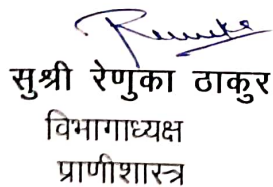 Renuka
सुश्री रेणुका ठाकुर
विभागाध्यक्ष
प्राणीशास्त्र